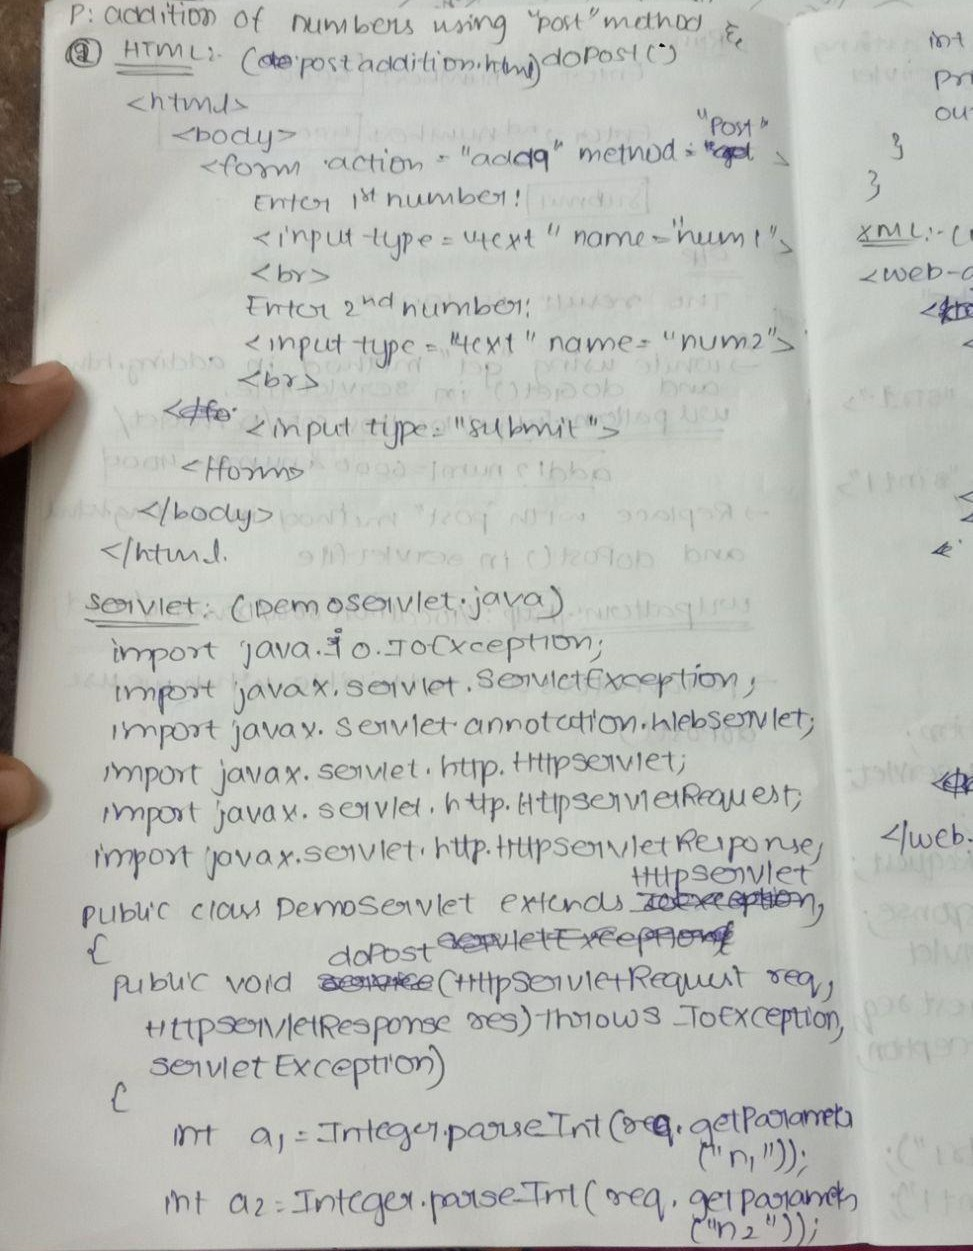 P: addition of numbers using "post" method &
② HTML:- (postaddition.html) doPost()
<html>
<body>
"Post"
<form action = "addq" method =
Enter 1st number:
<input type = "text" name = "num1">
<br>
Enter 2nd number:
<input type = "text" name = "num2">
<br>
<input type = "submit">
</form>
</body>
</html.
servlet: (Demoservlet.java)
import java.io.IoException;
import javax.servlet.ServletException;
import javax.servlet.annotation.WebServlet;
import javax.servlet.http.HttpServlet;
import javax.servlet.http.HttpServletRequest;
import javax.servlet.http.HttpServletResponse;
HttpServlet
public class DemoServlet extends
{
doPost
public void (HttpServletRequest req,
HttpServletResponse res) throws IoException,
servletException)
{
int a1 = Integer.parseInt(req.getParamete
("n1"));
int a2 = Integer.parseInt(req.getParamete
("n2"));
int
pri
ou
}
}
XML:-(
<web-a
</web-